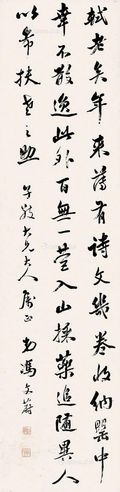 軾老矣年來薄有詩文幾卷收納器中
幸不散逸此外百無一營入山採藥追隨異人
以希扶老之助
午敬大兄大人屬正 馮文蔚